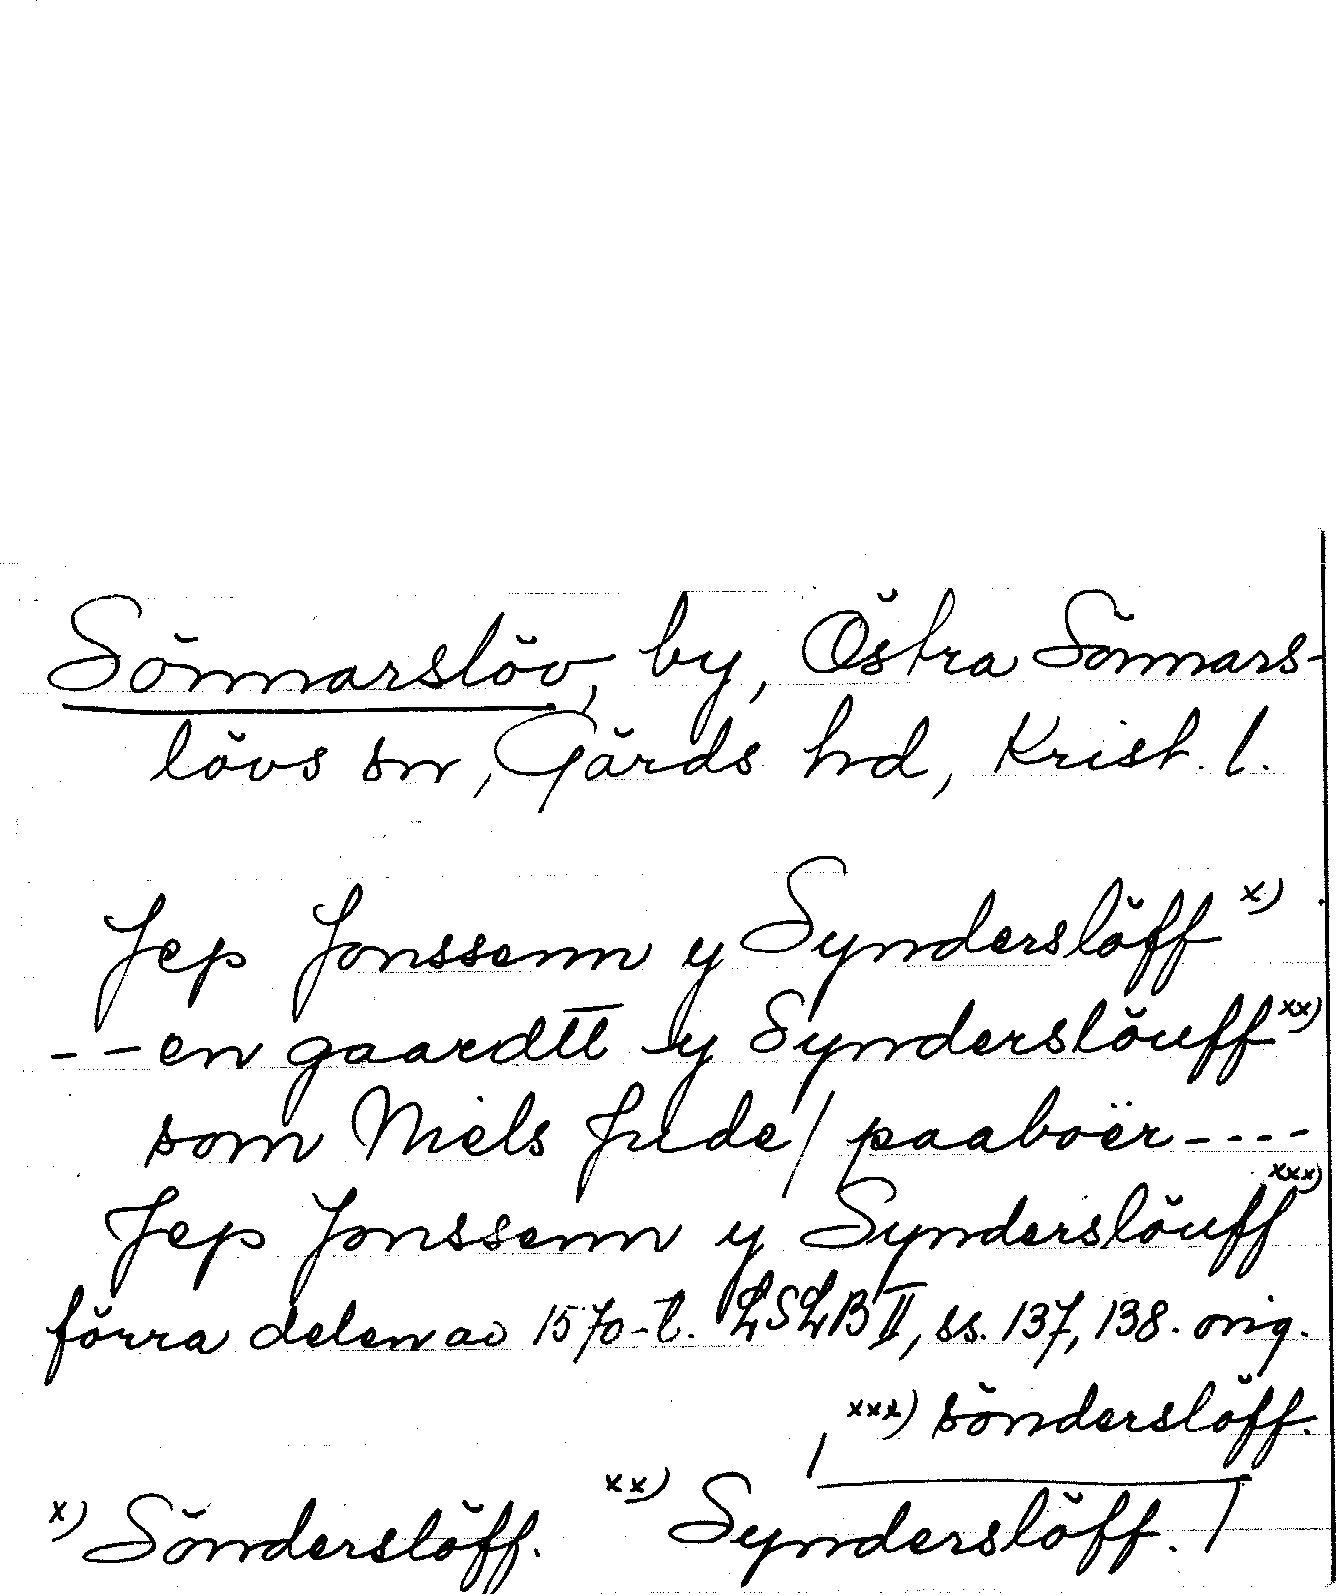 Sönnarslöv, by, Östra Sönnars-
lövs sn, Gärds hd, Krist. l.
Jep Jonssenn y Synderslöff x)
-- en gaardtt y Synderslöuff xx)
som Niels Jude/ paaboër ----
Jep Jonssenn y Synderslöuff xxx)
förra delen av 1570-t. LSLB II, ss. 137, 138. orig.
xxx) sönderslöff.
x) Sönderslöff. xx) Synderslöff.